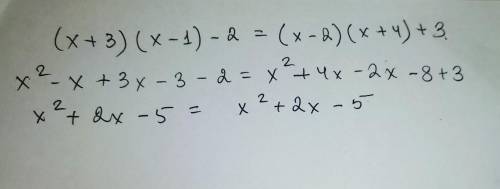 (x + 3) (x - 1) - 2 = (x - 2) (x + 4) + 3.
x² - x + 3x - 3 - 2 = x² + 4x - 2x - 8 + 3
x² + 2x - 5 = x² + 2x - 5